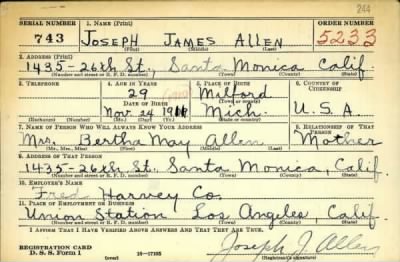 244
SERIAL NUMBER 1. NAME (Print) ORDER NUMBER
743 JOSEPH JAMES ALLEN 5233
(First) (Middle) (Last)
2. ADDRESS (Print)
1435-26th St., Santa Monica, Calif
(Number and street or R. F. D. number) (Town) (County) (State)
3. TELEPHONE 4. AGE IN YEARS 5. PLACE OF BIRTH 6. COUNTRY OF CITIZENSHIP
29 Milford
DATE OF BIRTH (Town or county)
Nov. 24 1911 Mich. U.S.A.
(Exchange) (No.) (Mo.) (Day) (Yr.) (State or country)
7. NAME OF PERSON WHO WILL ALWAYS KNOW YOUR ADDRESS 8. RELATIONSHIP OF THAT PERSON
Mrs. Bertha May Allen Mother
(Mr., Mrs., Miss) (First) (Middle) (Last)
9. ADDRESS OF THAT PERSON
1435-26th St., Santa Monica, Calif.
(Number and street or R. F. D. number) (Town) (County) (State)
10. EMPLOYER'S NAME
Fred Harvey Co.
11. PLACE OF EMPLOYMENT OR BUSINESS
Union Station Los Angeles, Calif.
(Number and street or R. F. D. number) (Town) (County) (State)
I AFFIRM THAT I HAVE VERIFIED ABOVE ANSWERS AND THAT THEY ARE TRUE.
REGISTRATION CARD
D. S. S. Form 1 16—17105 Joseph J. Allen